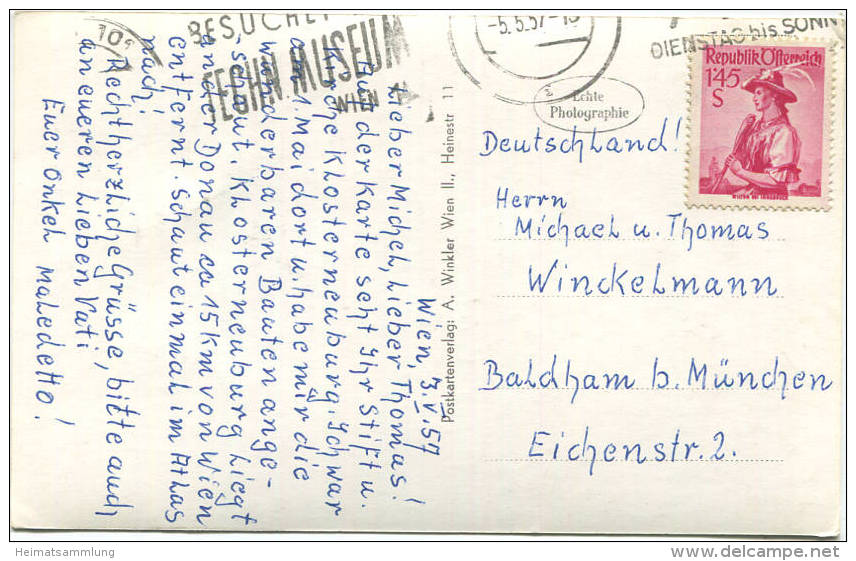 BESUCHET
TECHN. MUSEUM
WIEN
101
-5.5.57-
DIENSTAG bis SONN
Republik Österreich
1'45
S
Echte
Photographie
Wien, 3.V.57
Lieber Michel, Lieber Thomas!
Auf der Karte seht Ihr Stift u.
Kirche Klosterneuburg. Ich war
am 1. Mai dort u. habe mir die
wunderbaren Bauten ange-
schaut. Klosterneuburg liegt
an der Donau ca 15 km von Wien
entfernt. Schaut einmal im Atlas
nach!
Recht herzliche Grüsse, bitte auch
an eueren Lieben Vati
Euer Onkel Maledetto!
Postkartenverlag: A. Winkler Wien II., Heinestr 11
Deutschland!
Herrn
Michael u. Thomas
Winckelmann
Baldham b. München
Eichenstr. 2.
Heimatsammlung
delcampe.net